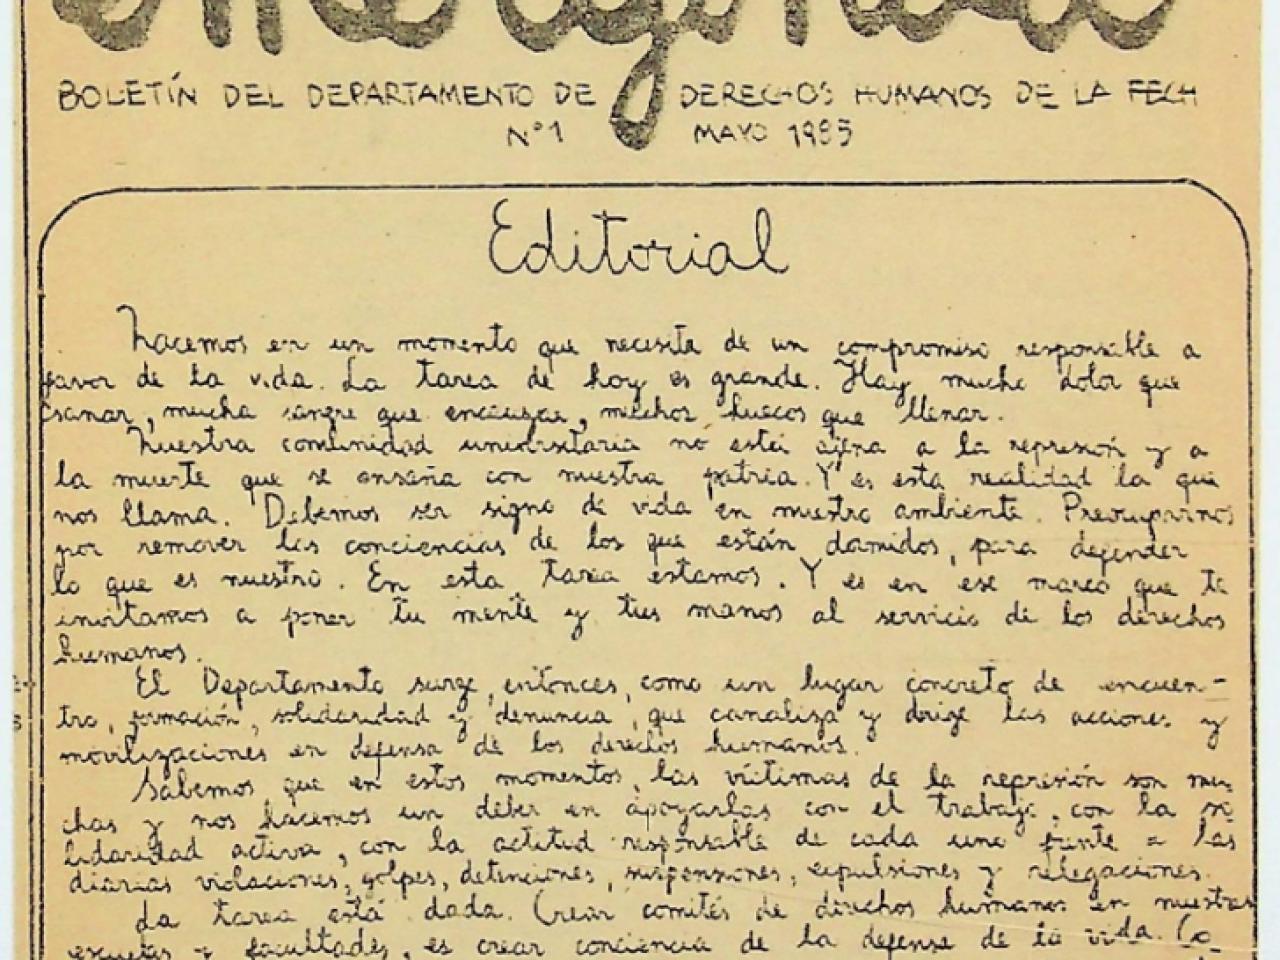 BOLETÍN DEL DEPARTAMENTO DE DERECHOS HUMANOS DE LA FECH
Nº1 MAYO 1985
Editorial
Nacemos en un momento que necesita de un compromiso responsable a
favor de la vida. La tarea de hoy es grande. Hay mucho dolor que
sanar, mucha sangre que encauzar, muchos huecos que llenar.
Nuestra comunidad universitaria no está ajena a la represión y a
la muerte que se ensaña con nuestra patria. Y es esta realidad la que
nos llama. Debemos ser signo de vida en nuestro ambiente. Preocuparnos
por remover las conciencias de los que están dormidos, para defender
lo que es nuestro. En esta tarea estamos. Y es en ese marco que te
invitamos a poner tu mente y tus manos al servicio de los derechos
humanos.
El Departamento surge, entonces, como un lugar concreto de encuen-
tro, formación, solidaridad y denuncia, que canaliza y dirige las acciones y
movilizaciones en defensa de los derechos humanos.
Sabemos que en estos momentos, las víctimas de la represión son mu-
chas y nos hacemos un deber en apoyarlas con el trabajo, con la so
lidaridad activa, con la actitud responsable de cada uno frente a las
diarias violaciones, golpes, detenciones, suspensiones, expulsiones y relegaciones.
La tarea está dada. Crear comités de derechos humanos en nuestras
escuelas y facultades, es crear conciencia de la defensa de la vida. Co-